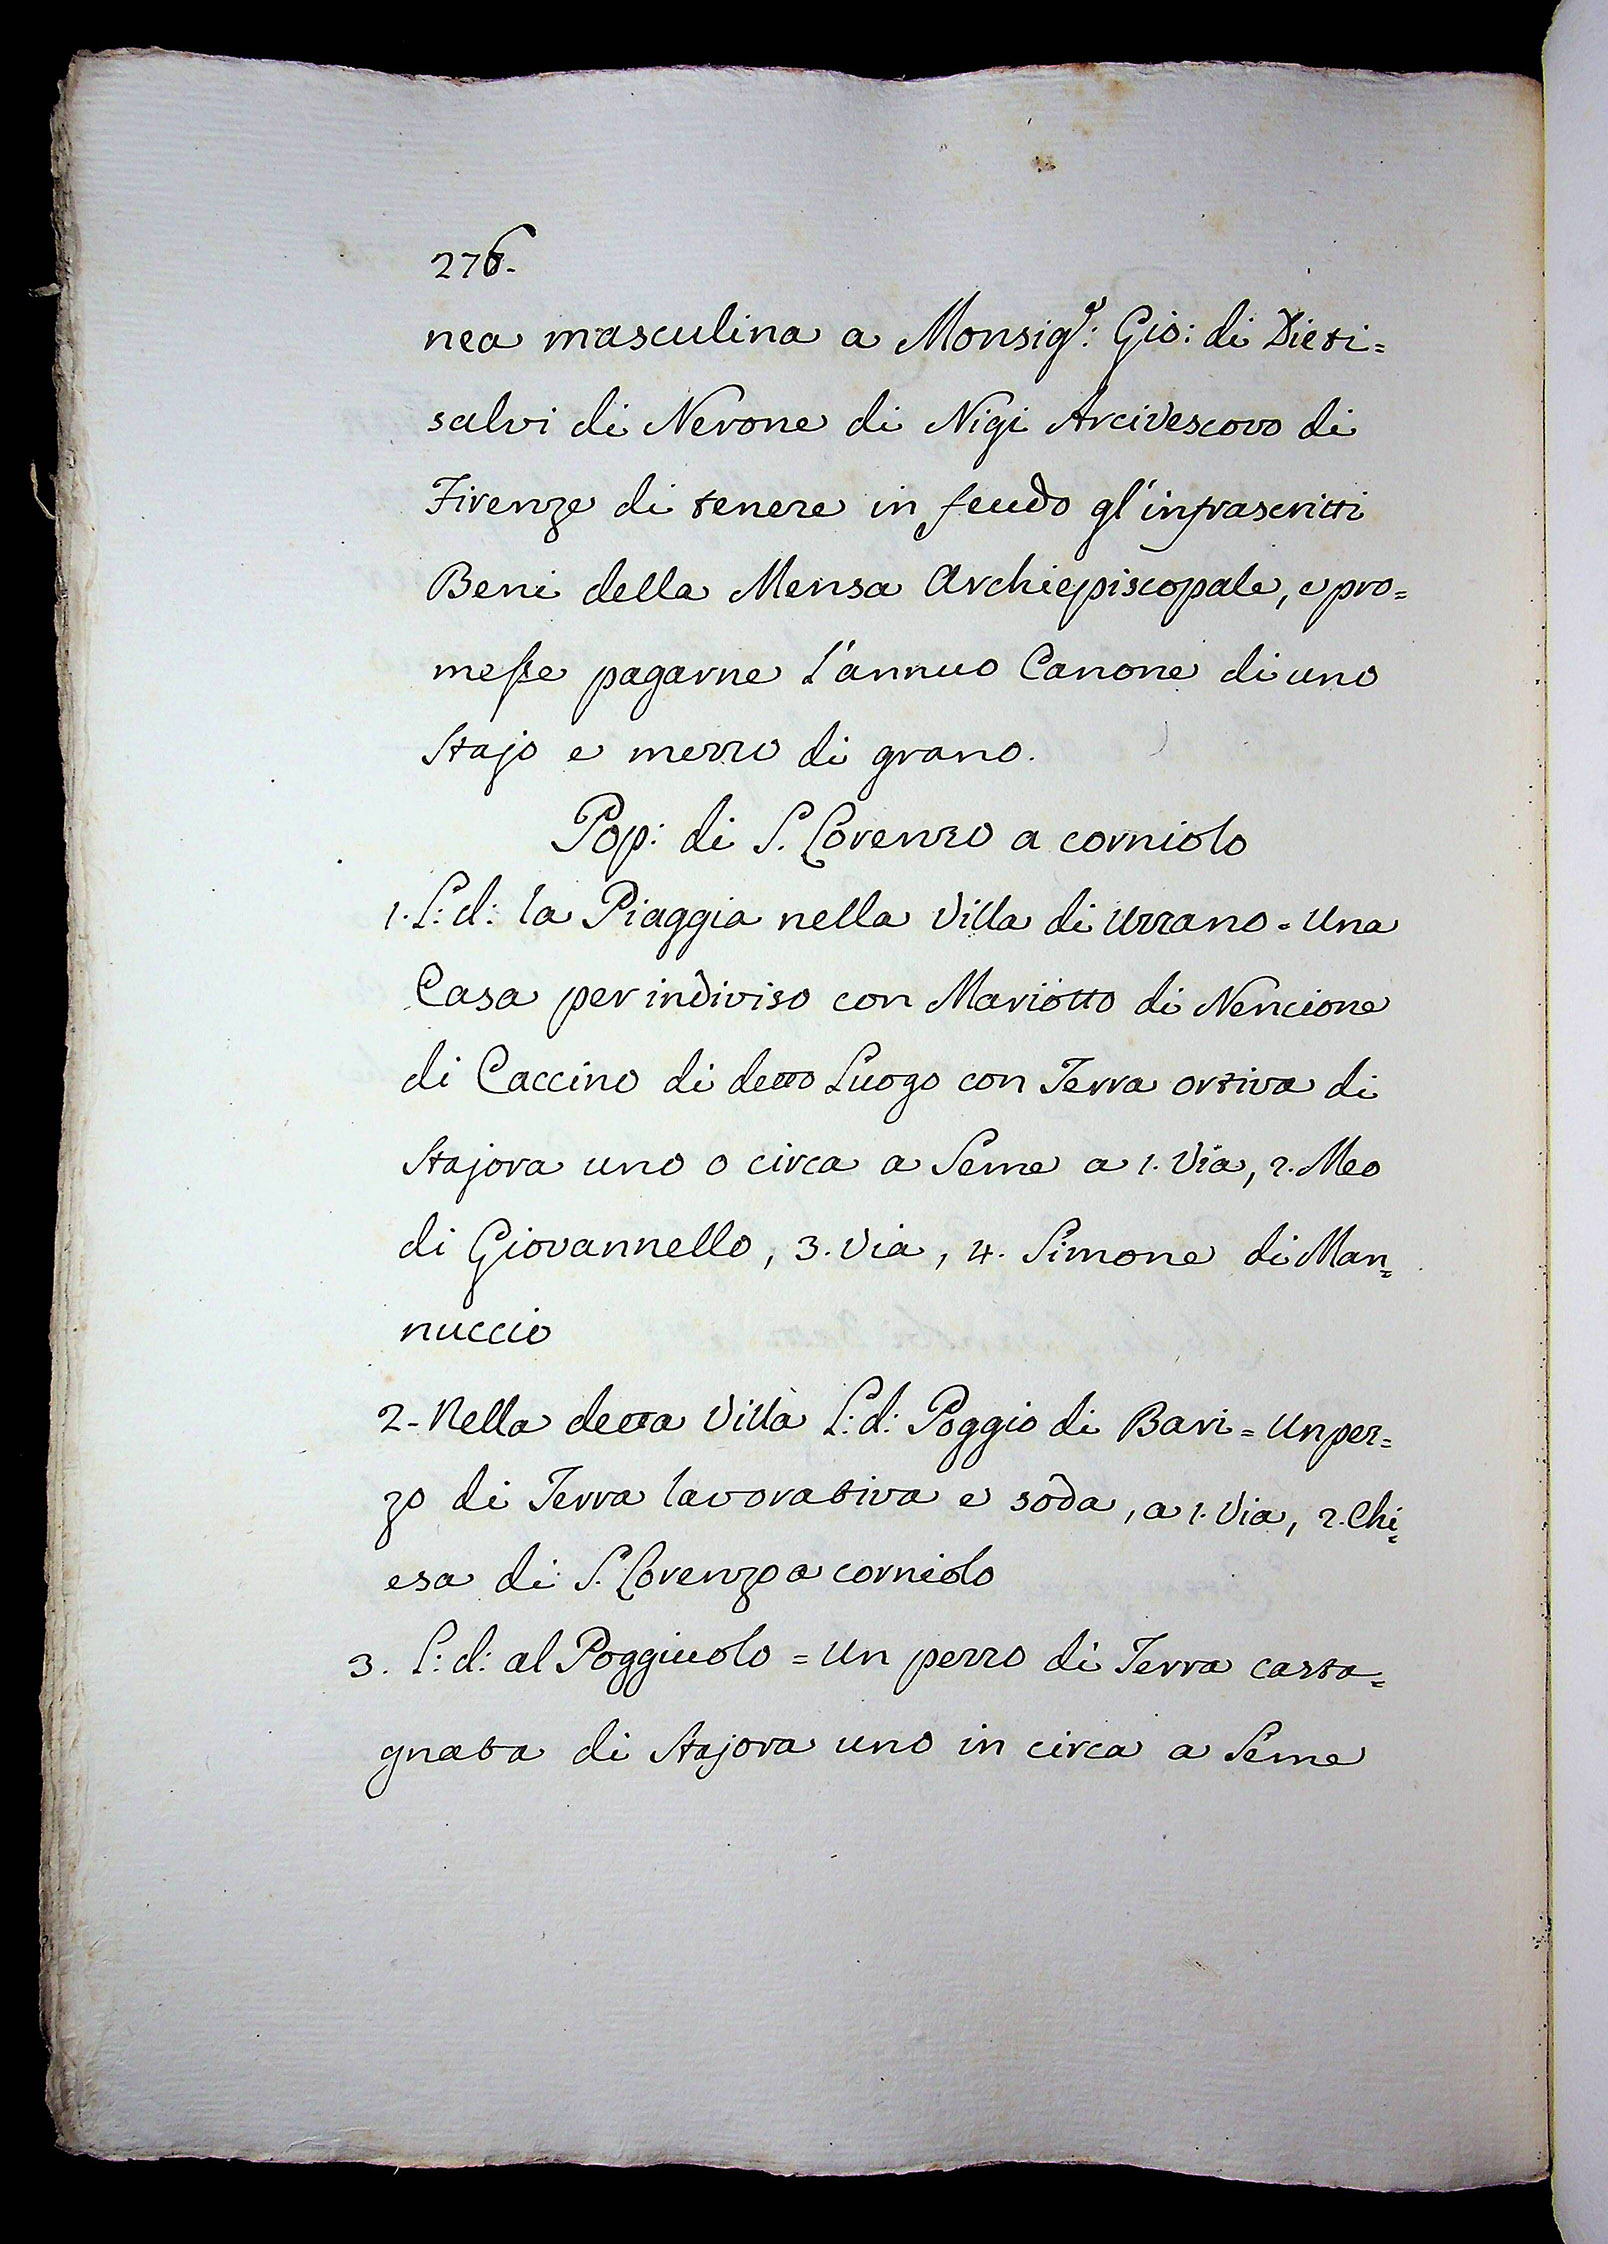 276.
nea masculina a Monsig.r: Gio: di Dieti=
salvi di Nerone di Nigi Arcivescovo di
Firenze di tenere in feudo gl'infrascritti
Beni della Mensa Archiepiscopale, e pro=
messe pagarne l'annuo Canone di uno
Stajo e mezzo di grano.
Pop: di S. Lorenzo a corniolo
1. L: d: la Piaggia nella Villa di Uzzano = Una
Casa per indiviso con Mariotto di Nencione
di Caccino di detto Luogo con Terra ortiva di
Stajora uno o circa a Seme a 1. Via, 2. Meo
di Giovannello, 3. Via, 4. Simone di Man=
nuccio
2- Nella detta Villa L: d: Poggio di Bari = Un pez=
zo di Terra lavorativa e soda, a 1. Via, 2. Chi=
esa di S. Lorenzo a corniolo
3. L: d: al Poggiuolo = Un pezzo di Terra casta=
gnata di Stajora uno in circa a Seme